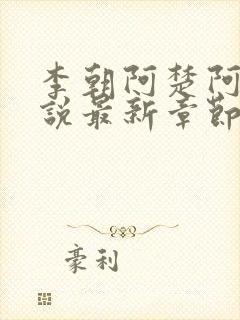 李朝阿楚阿
說最新章節
豪利